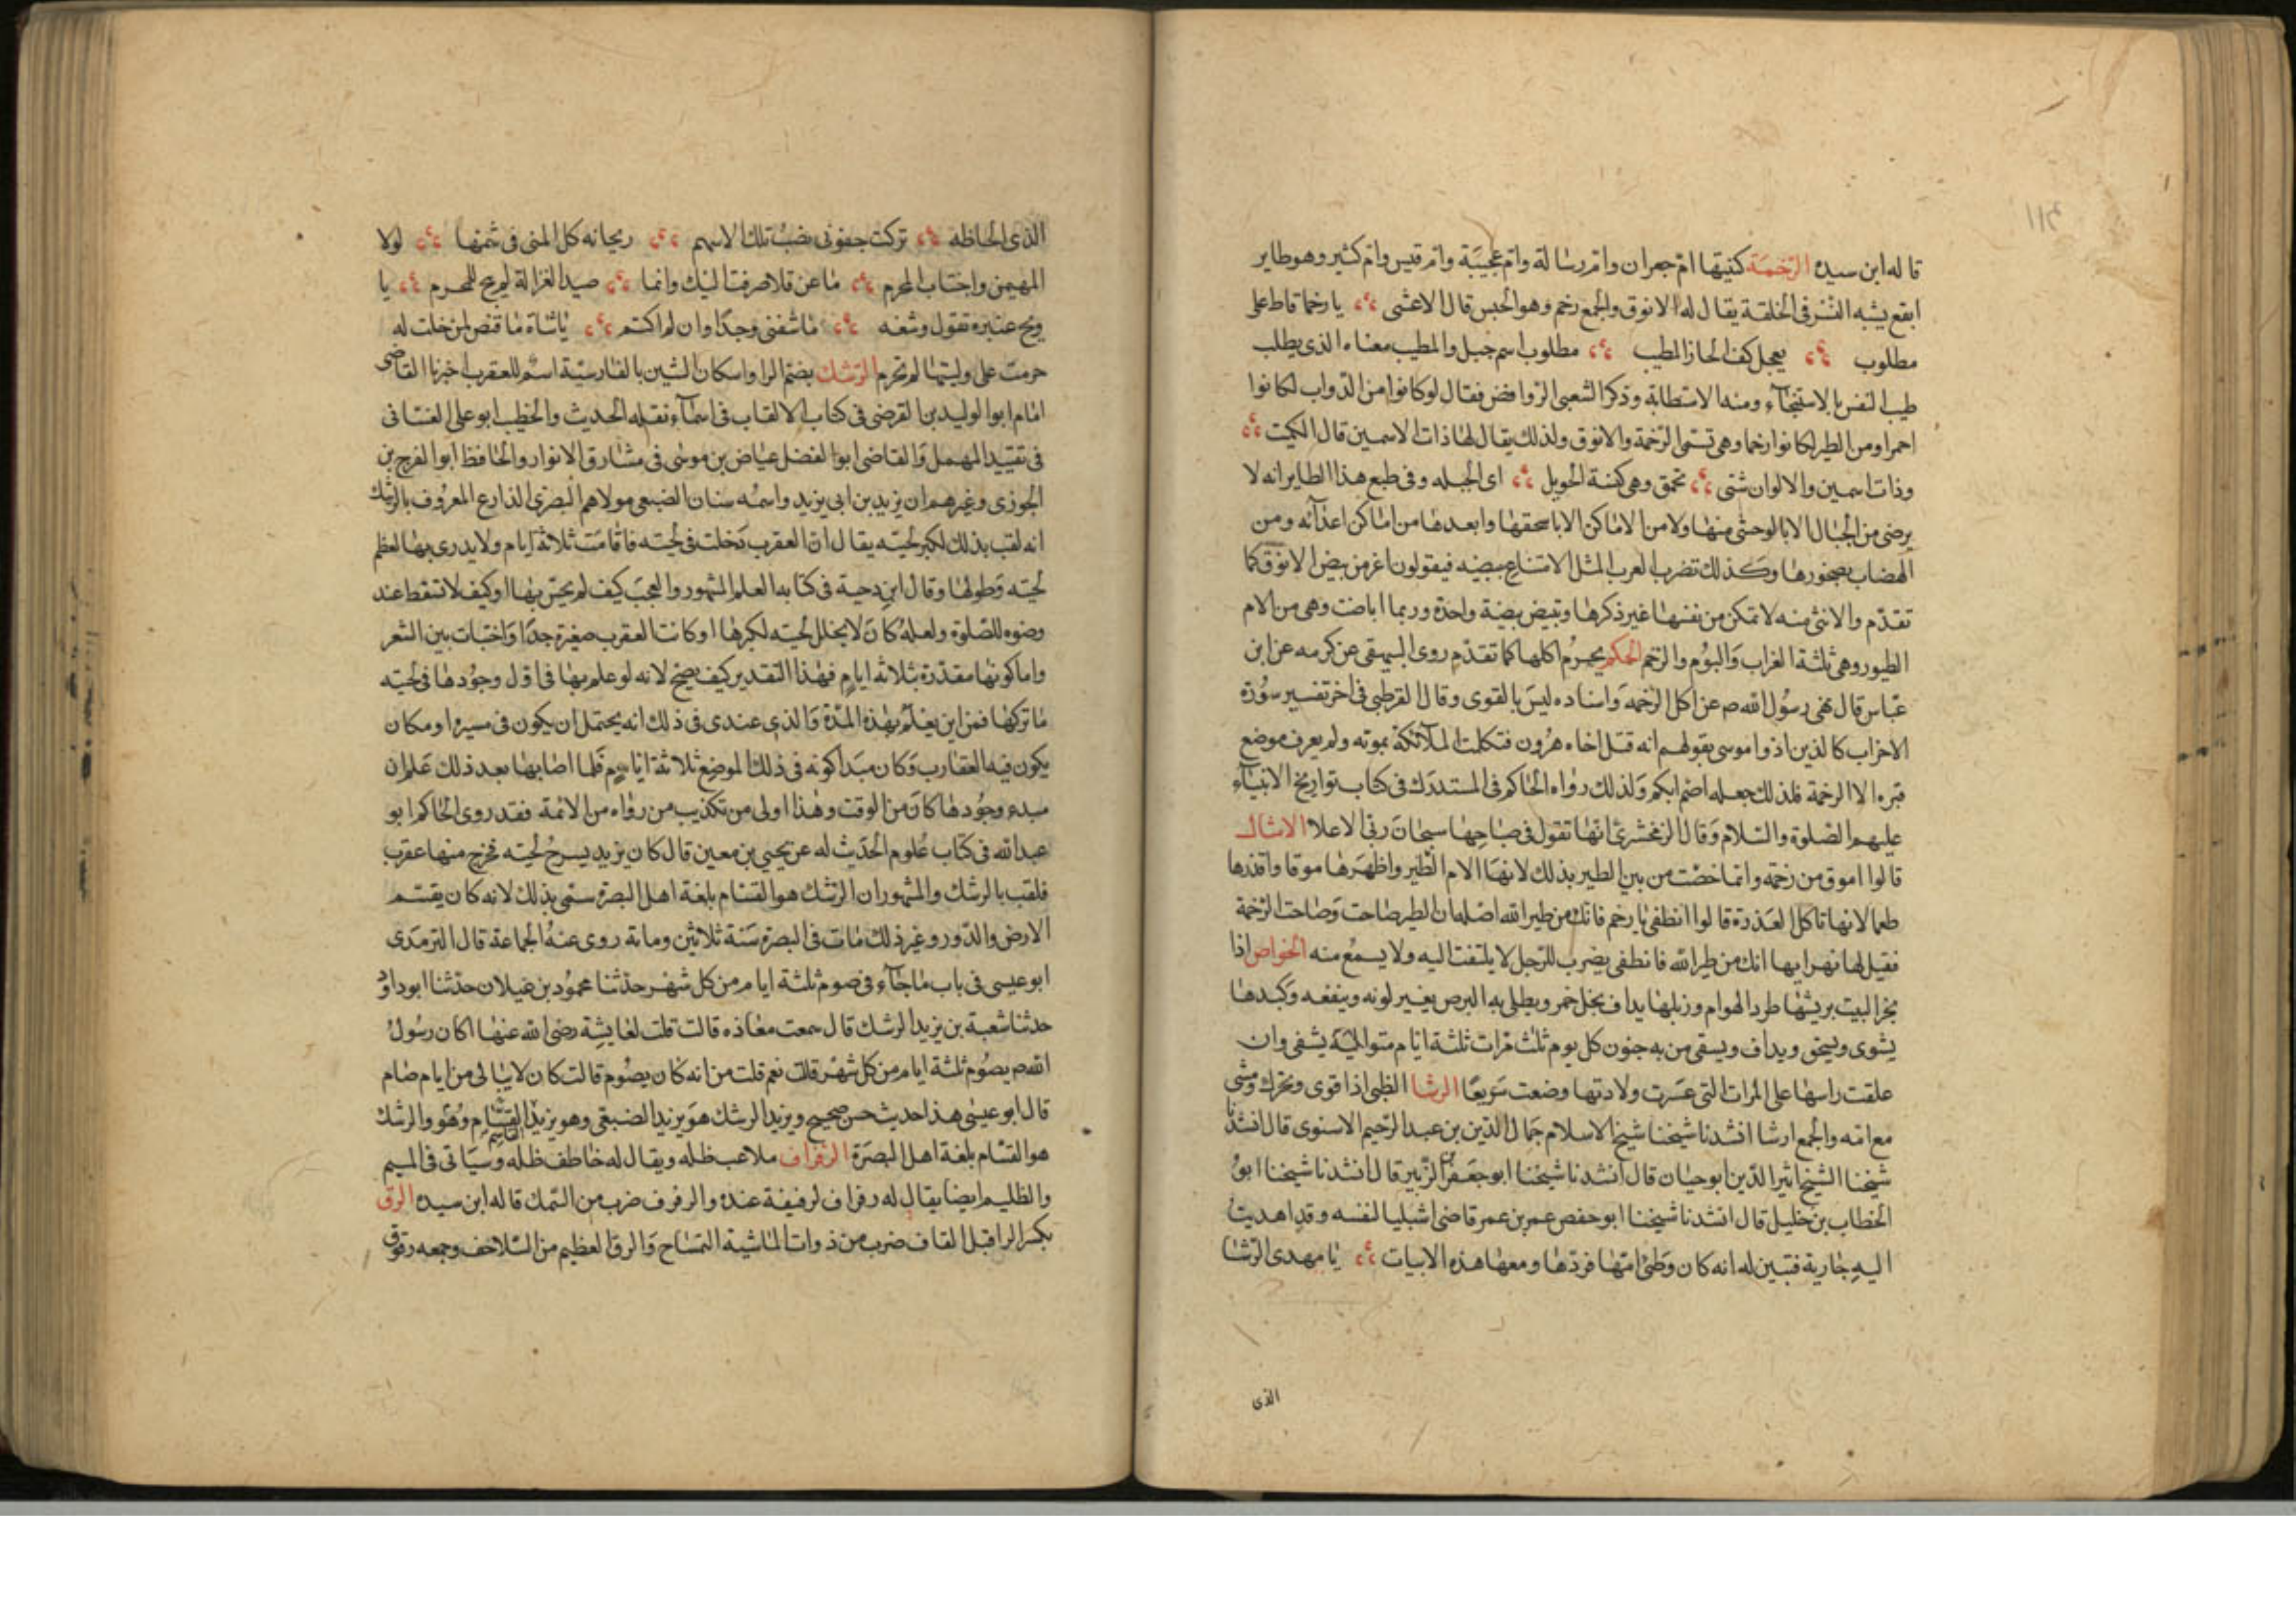 قاله ابن سيده الرّخمَة كنيتها امّ جعران وامّ رسالة وامّ عجيبَة وامّ قيس وامّ كثير وهو طاير
ابقع يشبه النّسْر فى الخلقة يقال له الانوق والجمع رخم وهو الحبس قال الاعشى يا رخما قاط على
مطلوب يعجل كف الخاز المطيب مطلوب اسم جبل والمطيب معناه الذى يطلب
طيب النفس بالاستنجآء ومنه الاستطابة وذكر الشعبى الروافض فقال لو كانوا من الدّواب لكانوا
احمرا ومن الطير لكانوا رخما وهى تسمى الرّخمة والانوق ولذلك يقال لها ذات الاسمين قال الكميت
وذات اسمين والالوان شتى تحمق وهى كيسة الحويل اى الحيله وفى طبع هذا الطاير انه لا
يرضى من الجبال الا بالوحشى منها ولا من الاماكن الا باسحقها وابعدها من اماكن اعدآئه ومن
الهضاب بصخورها وكذلك تضرب العرب المثل الامتناع ببيضه فيقولون اعز من بيض الانوق كما
تقدّم والانثى منه لا تمكن من نفسها غير ذكرها وتبيض بيضة واحدة وربما اباضت وهى من الام
الطيور وهى ثلثة الغراب وَالبوُم والرّخم الحكم يحرُم اكلها كما تقدّم روى البيهقى عن كرمه عن ابن
عبّاس قال نهى رسُول الله صم عن اكل الرّخمه وَاسناده ليسَ بالقوى وقال القرطبى فى اخر تفسير سُورة
الاحزاب كالذين اذوا موسى بقولهم انه قتل اخاه هرُون فتكلمت الملآئكة بموته ولم يعرف موضع
قبره الا الرخمة فلذلك جعله اصم ابكم وَلذلك رواه الحاكم فى المستدرَك فى كتاب تواريخ الانبيآء
عليهم الصّلوة والسّلام وَقال الزمخشرىّ انهَا تقول فى صيَاحِهَا سبحانَ ربّى الاعلا الامثال
قالوا اموق من رخمة وانما خصّت من بين الطير بذلك لانهَا الام الطّير واظهَرهَا موقا واقذرها
طعما لانها تاكل العَذرة قالوا انطقى يا رخم فانك من طير الله اصلها ان الطير صَاحت وَصَاحت الرّخمة
فقيل لها نهرا بها انك من طير الله فانطقى يضرب للرّجل لا يلتفت اليه ولا يسمعُ منه الخواص اذا
بخر البيت بريشهَا طرد الهوام وزبلها يداف بخل خمر ويطلى به البرص يغير لونه وينفعه وَكبدها
يشوى ويسحق ويداف ويسقى من به جنون كل يوم ثلث مرّات ثلثة ايّام متواليَة يشفى وان
علقت راسهَا على المرات التى عسَرت ولادتها وضعت سَريعًا الرشا الظبى اذا قوى وتحرّك ومشى
مع امّه والجمع ارشا انشدنا شيخنا شيخ الاسلام جمَال الدّين بن عبد الرّحيم الاسنوى قال انشدنا
شيخنا الشيخ اثير الدّين ابو حيان قال انشدنا شيخنا ابو جعَفر الزّبير قال انشدنا شيخنا ابوُ
الخطاب بن خليل قال انشدنا شيخنا ابو حفص عمر بن عمر قاضى اشبليا لنفسه وقد اهديت
اليهِ جَارية فتبين له انه كان وَطئ امّهَا فردّهَا ومعهَا هذه الابيات يَا مهدى الرّشا
الذى
الذى الحاظه تركت جفونى نصبُ تلك الاسهم ريحانه كل المنى فى شمّها لولا
المهيمن واجتناب المحرم مَا عن قلا صرفت اليك وانما صيد الغزالة لم يبح للمحرم يا
ويح عنتره تقول وشفه مَا شفنى وجدًا وان لم اكتم يَا شاة مَا قنص لمن حلت له
حرمت على وليتهَا لم تحرم الرّشك بضمّ الرا واسكان الشين بالفارسيّة اسمٌ للعقرب اخبرنا القاضى
امَام ابوا الوليد بن الفرضى فى كتاب الالقاب فى اسمآء نقله الحديث والخطيب ابو على الغسّانى
فى تقييد المهمل وَالقاضى ابوا الفضل عيَاض بن موسٰى فى مشارق الانوار والحَافظ ابوا الفرج بن
الجوزى وغيرهم ان يزيد بن ابى يزيد واسمُه سنان الضبعى مولاهم البصرى الذارع المعروُف بالرّشك
انه لقب بذلك لكبر لحيته يقال انّ العقرب دَخلت فى لحيته فاقامَت ثلاثة ايام ولا يدرى بها لعظم
لحيته وَطولهَا وقال ابن دحية فى كتابه العلم المشهور والعجبَ كيف لم يحسّ بهَا او كيف لا تسقط عند
وضوه للصّلوة ولعلهُ كانَ لا يخلل لحيته لكبرهَا او كانت العقرب صغيرة جدّا وَاختبات بين الشعر
واما كونهَا مقدّرة بثلاثه ايام فهٰذا التقدير كيف يصحّ لانه لو علم بهَا فى اوّل وجوُدهَا فى لحيته
مَا تركهَا فمن اين يعلمُ بهٰذه المدّة وَالذى عندى فى ذلك انه يحتمل ان يكون فى مسيره او مكان
يكون فيه العقارب وَكان مبَدا كونه فى ذلك الموضع ثلاثة ايّام فلما اصَابها بعد ذلك عَلم ان
مبدء وجوُدهَا كانَ من الوقت وهٰذا اولى من تكذيب من روٰاه من الائمة فقد روى الحاكم ابو
عبد الله فى كتاب عُلوم الحدَيث له عن يحيى بن معين قال كان يزيد يسرحُ لحيته فخرج منها عقرب
فلقب بالرشك والمشهور ان الرّشك هو القسّام بلغة اهل البصره سمّى بذلك لانه كان يقسّم
الارض والدّور وغير ذلك مَات فى البصرة سَنة ثلاثين ومائة روى عنهُ الجماعة قال الترمَدى
ابو عيسى فى باب مَا جَآء فى صوم ثلثة ايام من كل شهْر حدّثنا محموُد بن غيلان حدّثنا ابو داوُد
حدثنا شعبة بن يزيد الرشك قال سمعت معاذه قالت قلت لعايشة رضى الله عنهَا اكان رسُولُ
الله صم يصُوم ثلثة ايام من كل شهْر قلت نعم قلت من انه كان يصُوم قالت كان لا يبالى من ايام صَام
قال ابو عيسى هذا حديث حسن صحيح ويزيد الرشك هوَ يزيد الضبعَى وهو يزيد القسّام وهُوَ والرشك
هو القسّام بلغة اهل البصرَة الرفراف ملاعب ظله ويقال له خاطف ظله وَسيَاتى فى الميم
والظليم ايضا يقال له رفراف لرفيفة عنده والرفرف ضرب من السّمك قاله ابن سيده الرق
بكسر الرا قبل القاف ضرب من ذوات الماشية التمسَاح وَالرق العظيم من السّلاحف وجمعه رقوق